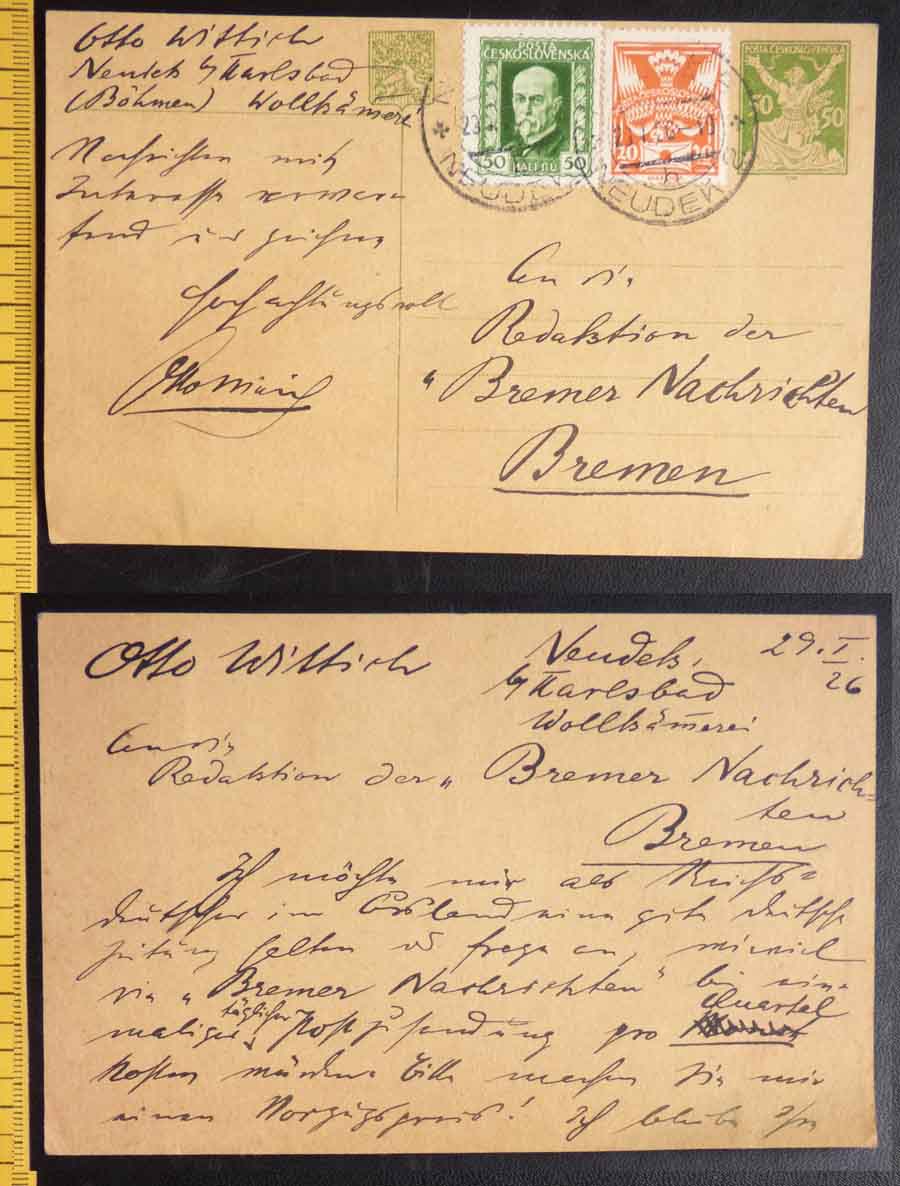 Otto Wittich
Neudek b/Karlsbad
(Böhmen) Wollkämmerei
POSTA
ČESKOSLOVENSKÁ
50 HALÉŘŮ 50
POSTA ČESKOSLOVENSKÁ
20 20
POSTA ČESKOSLOVENSKÁ
50 50
NEUDEK
NEUDEK
Nachrichten mit
Interesse erwar-
tend u. zeichne
hochachtungsvoll
Otto Wittich
An die
Redaktion der
„Bremer Nachrichten
Bremen
Otto Wittich
Neudek, 29.I.
b/Karlsbad 26
Wollkämmerei
An die
Redaktion der „Bremer Nachrich=
ten
Bremen
Ich möchte mir als Reichs=
deutscher im Ausland eine gute deutsche
Zeitung halten u frage an, wieviel
die „Bremer Nachrichten" bei ein-
maliger täglicher Postzusendung pro Quartal
kosten würden. Bitte machen Sie mir
einen Vorzugspreis! Ich bleibe Ihre